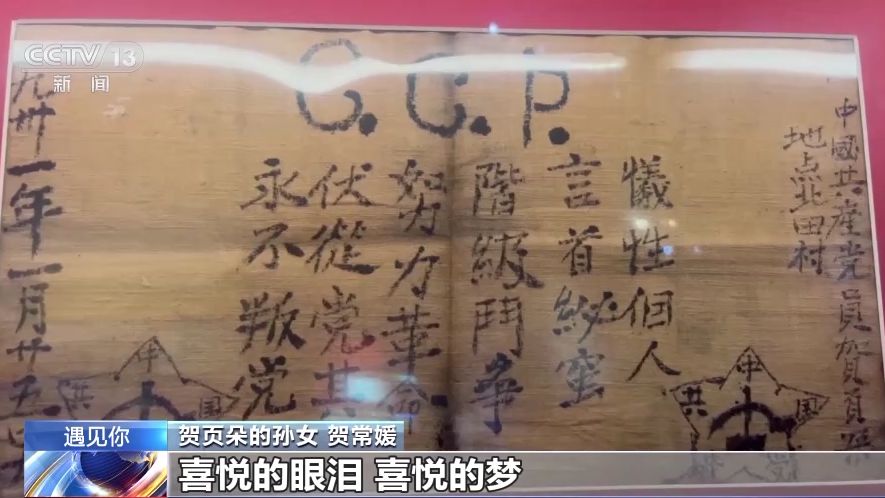 CCTV 13
新闻
C.C.P.
中國共産党員賀頁
地点北田村
犧牲個人
言首秘蜜
階級鬥爭
努力革命
伏從党其
永不叛党
九卅一年一月廿五
中国共
中国共
遇见你
贺页朵的孙女 贺常媛
喜悦的眼泪 喜悦的梦